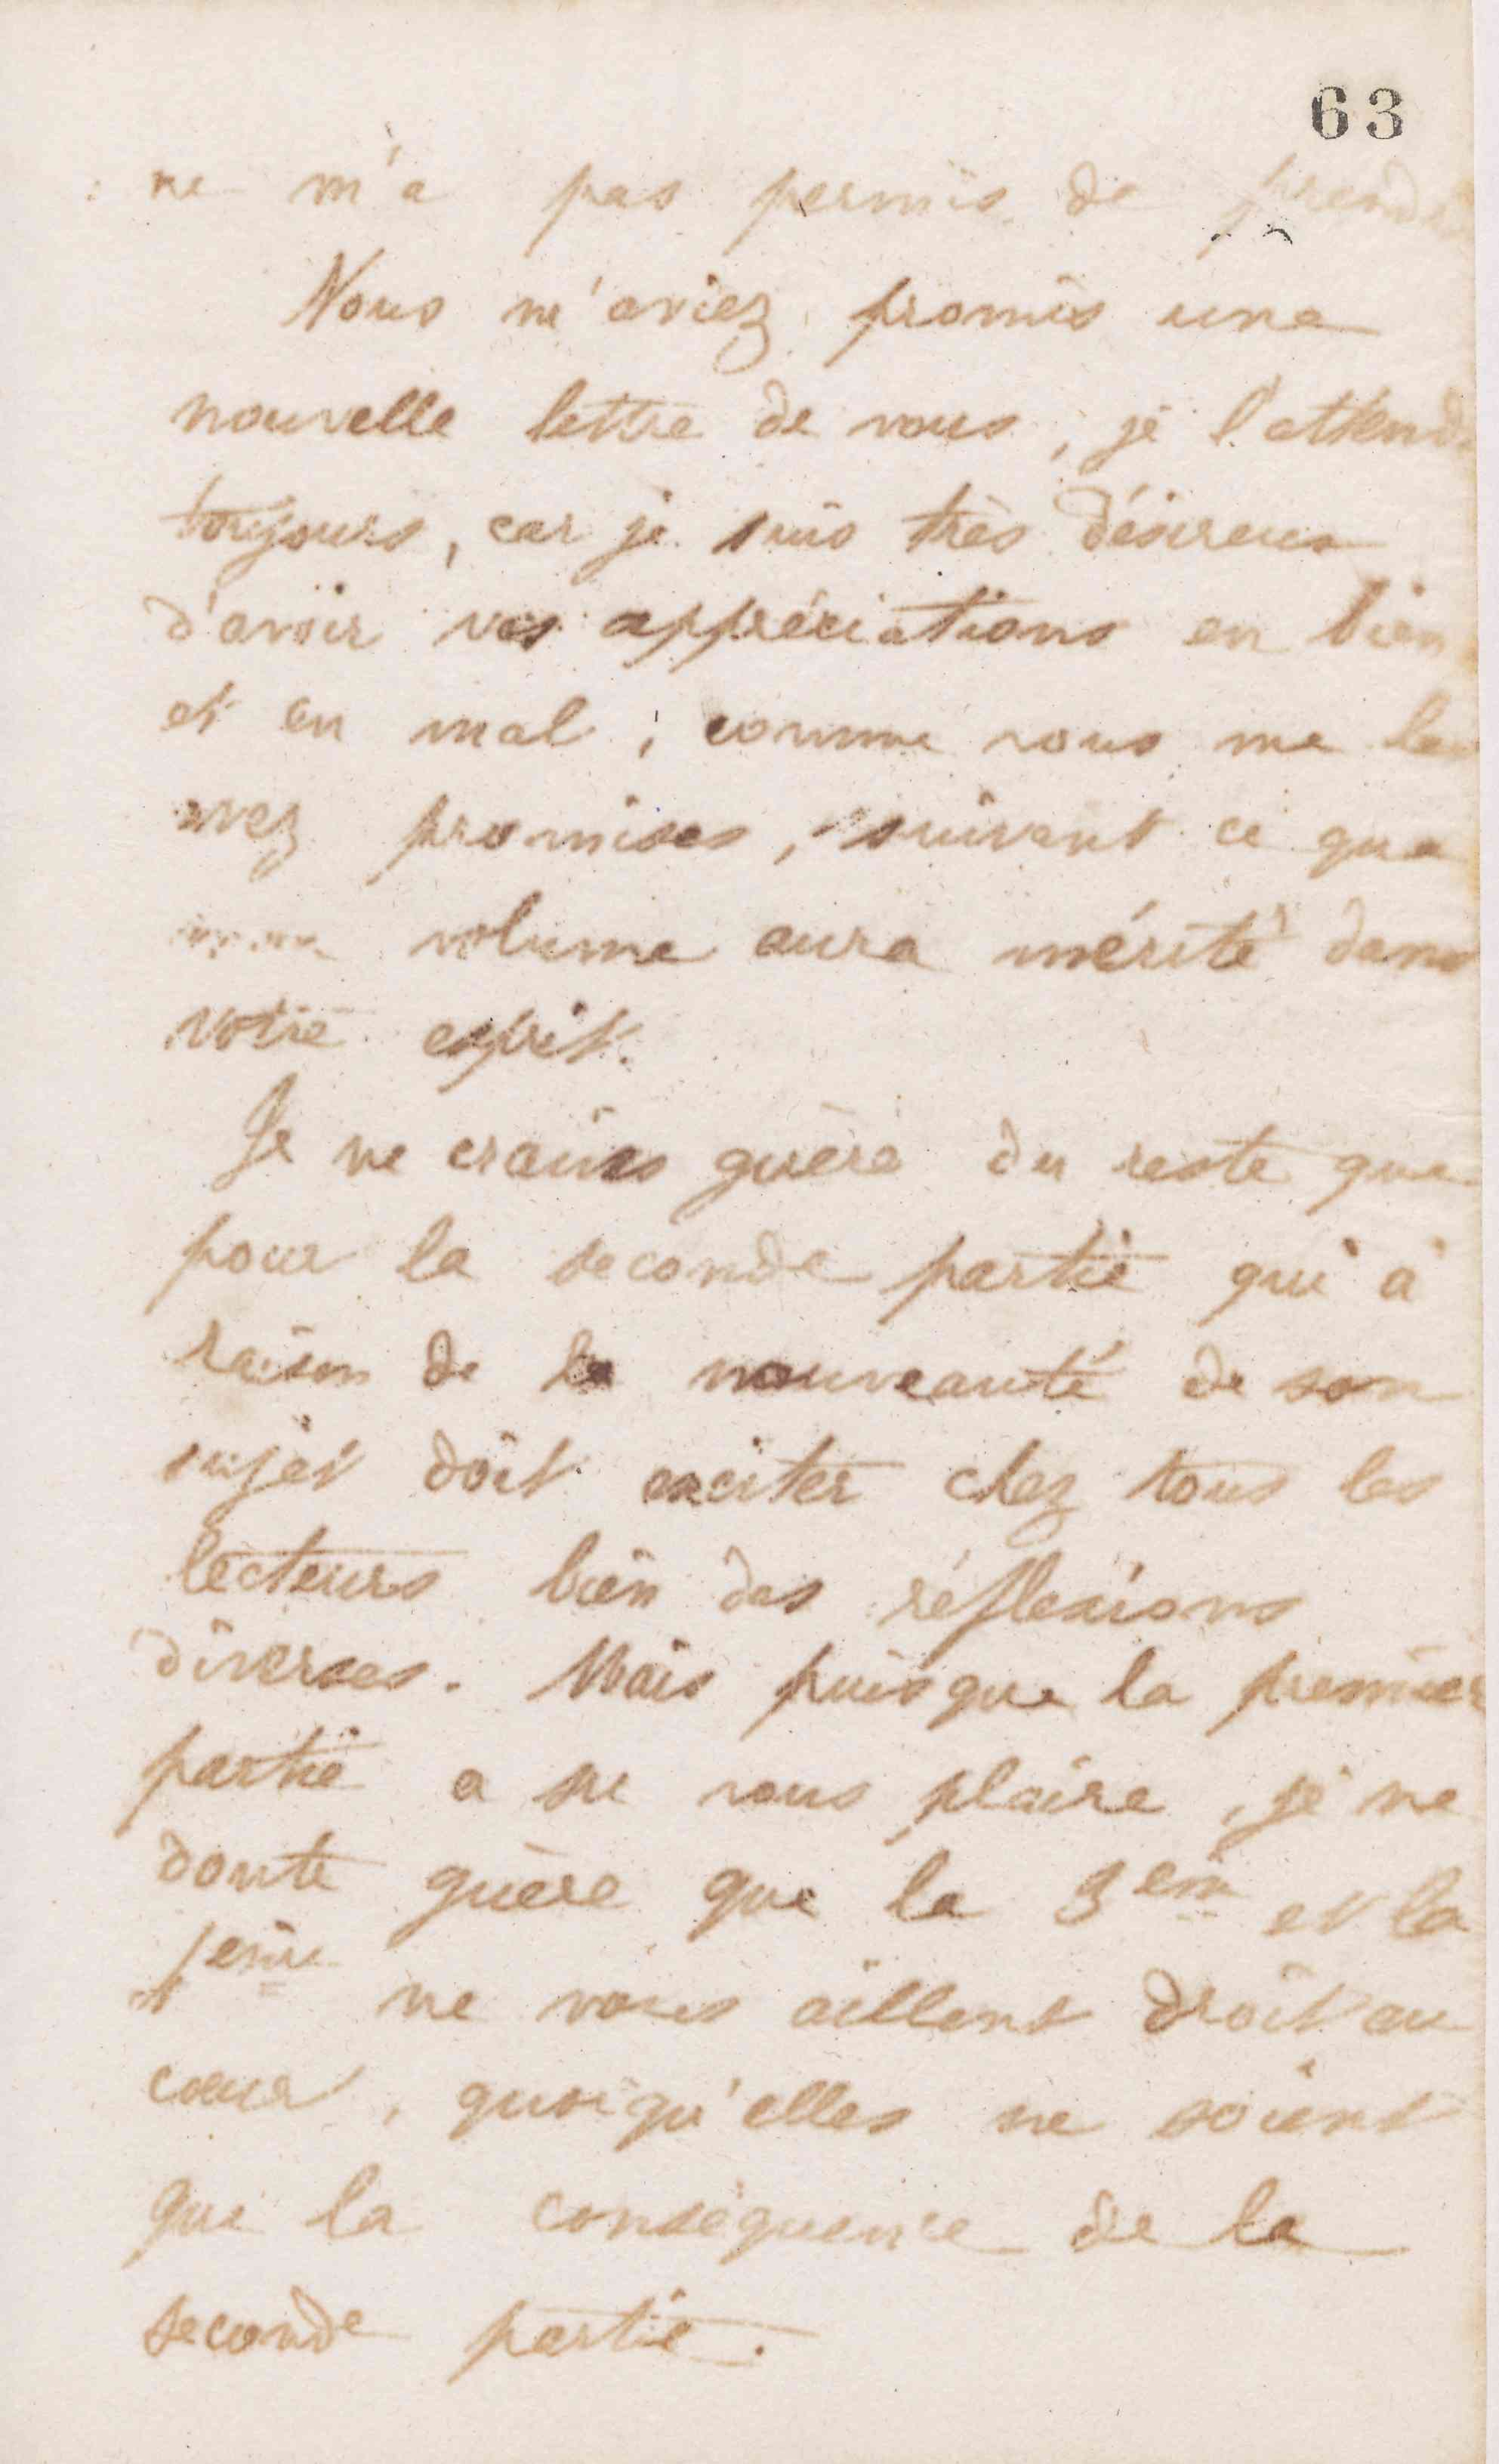 63
ne m'a pas permis de prendre
Vous m'aviez promis une
nouvelle lettre de vous, je l'attends
toujours, car je suis très désireux
d'avoir vos appréciations en bien
et en mal, comme vous me les
avez promises, suivant ce que
mon volume aura mérité dans
votre esprit.
Je ne crains guère du reste que
pour la seconde partie qui à
raison de la nouveauté de son
sujet doit exciter chez tous les
lecteurs bien des réflexions
diverses. Mais puisque la premièr
partie a su vous plaire, je ne
doute guère que la 3em et la
4eme ne vous aillent droit au
cœur, quoiqu'elles ne soient
que la conséquence de la
seconde partie.